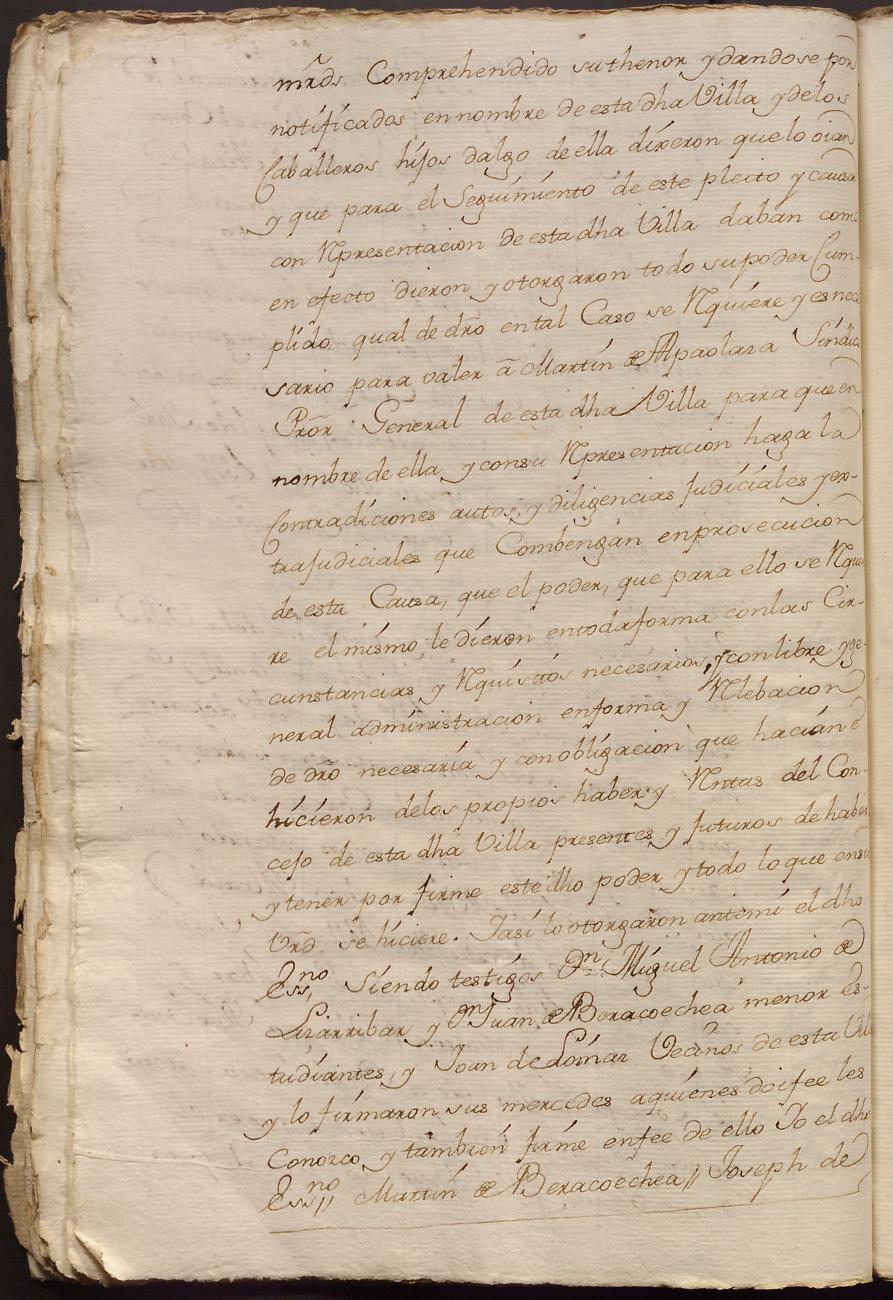 mrds. Comprehendido suthenor ydandose por
notificados ennombre de esta dha Villa ydelos
Caballeros hijos dalgo de ella dixeron que lo oian
y que para el Seguimiento de este pleito y causa
con Representacion de esta dha Villa daban como
en efecto dieron y otorgaron todo supoder Cum-
plido qual de dro ental Caso se Requiere y es nece
sario para valer â Martin de Apaolaza Sindico
Pror General de esta dha Villa para que en
nombre de ella y consu Representacion haga la
Contradiciones autos, y diligencias Judiciales yex-
trajudiciales que Combengan enprosecucion
de esta Causa, que el poder, que para ello se Requie
re el mismo le dieron entodaforma conlas Cir-
cunstancias, y Requisitos necesarios, y conlibre yge-
neral administracion enforma y Relebacion
de dro necesaria y conobligacion que hacian e
hicieron delos propios haber y Rentas del Con-
cejo de esta dha Villa presentes y futuros de haber
ytener por firme este dho poder ytodo lo que ensu
Vrd se hiciere. Iasi lo otorgaron antemi el dho
Essno, Siendo testigos Dn Miguel Antonio de
Lizarribar y Dn Juan de Beracoechea menor es-
tudiantes, y Joan de Loinaz Vecinos de esta Villa
y lo firmaron sus mercedes aquienes doifee les
Conozco y tambien firme enfee de ello Yo el dho
Essno // Martin de Beracoechea // Joseph de